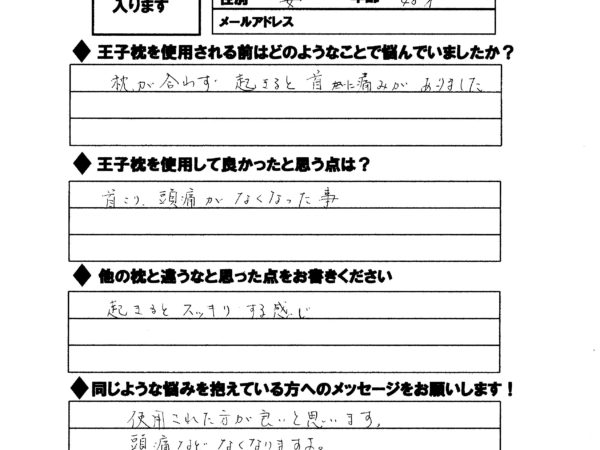 入ります
メールアドレス
◆王子枕を使用される前はどのようなことで悩んでいましたか？
枕が合わず 起きると 首 に痛みが ありました
◆王子枕を使用して良かったと思う点は？
首こり、頭痛が なくなった事
◆他の枕と違うなと思った点をお書きください
起きると スッキリ する感じ
◆同じような悩みを抱えている方へのメッセージをお願いします！
使用された方が良いと思います。
頭痛など なくなりますよ。